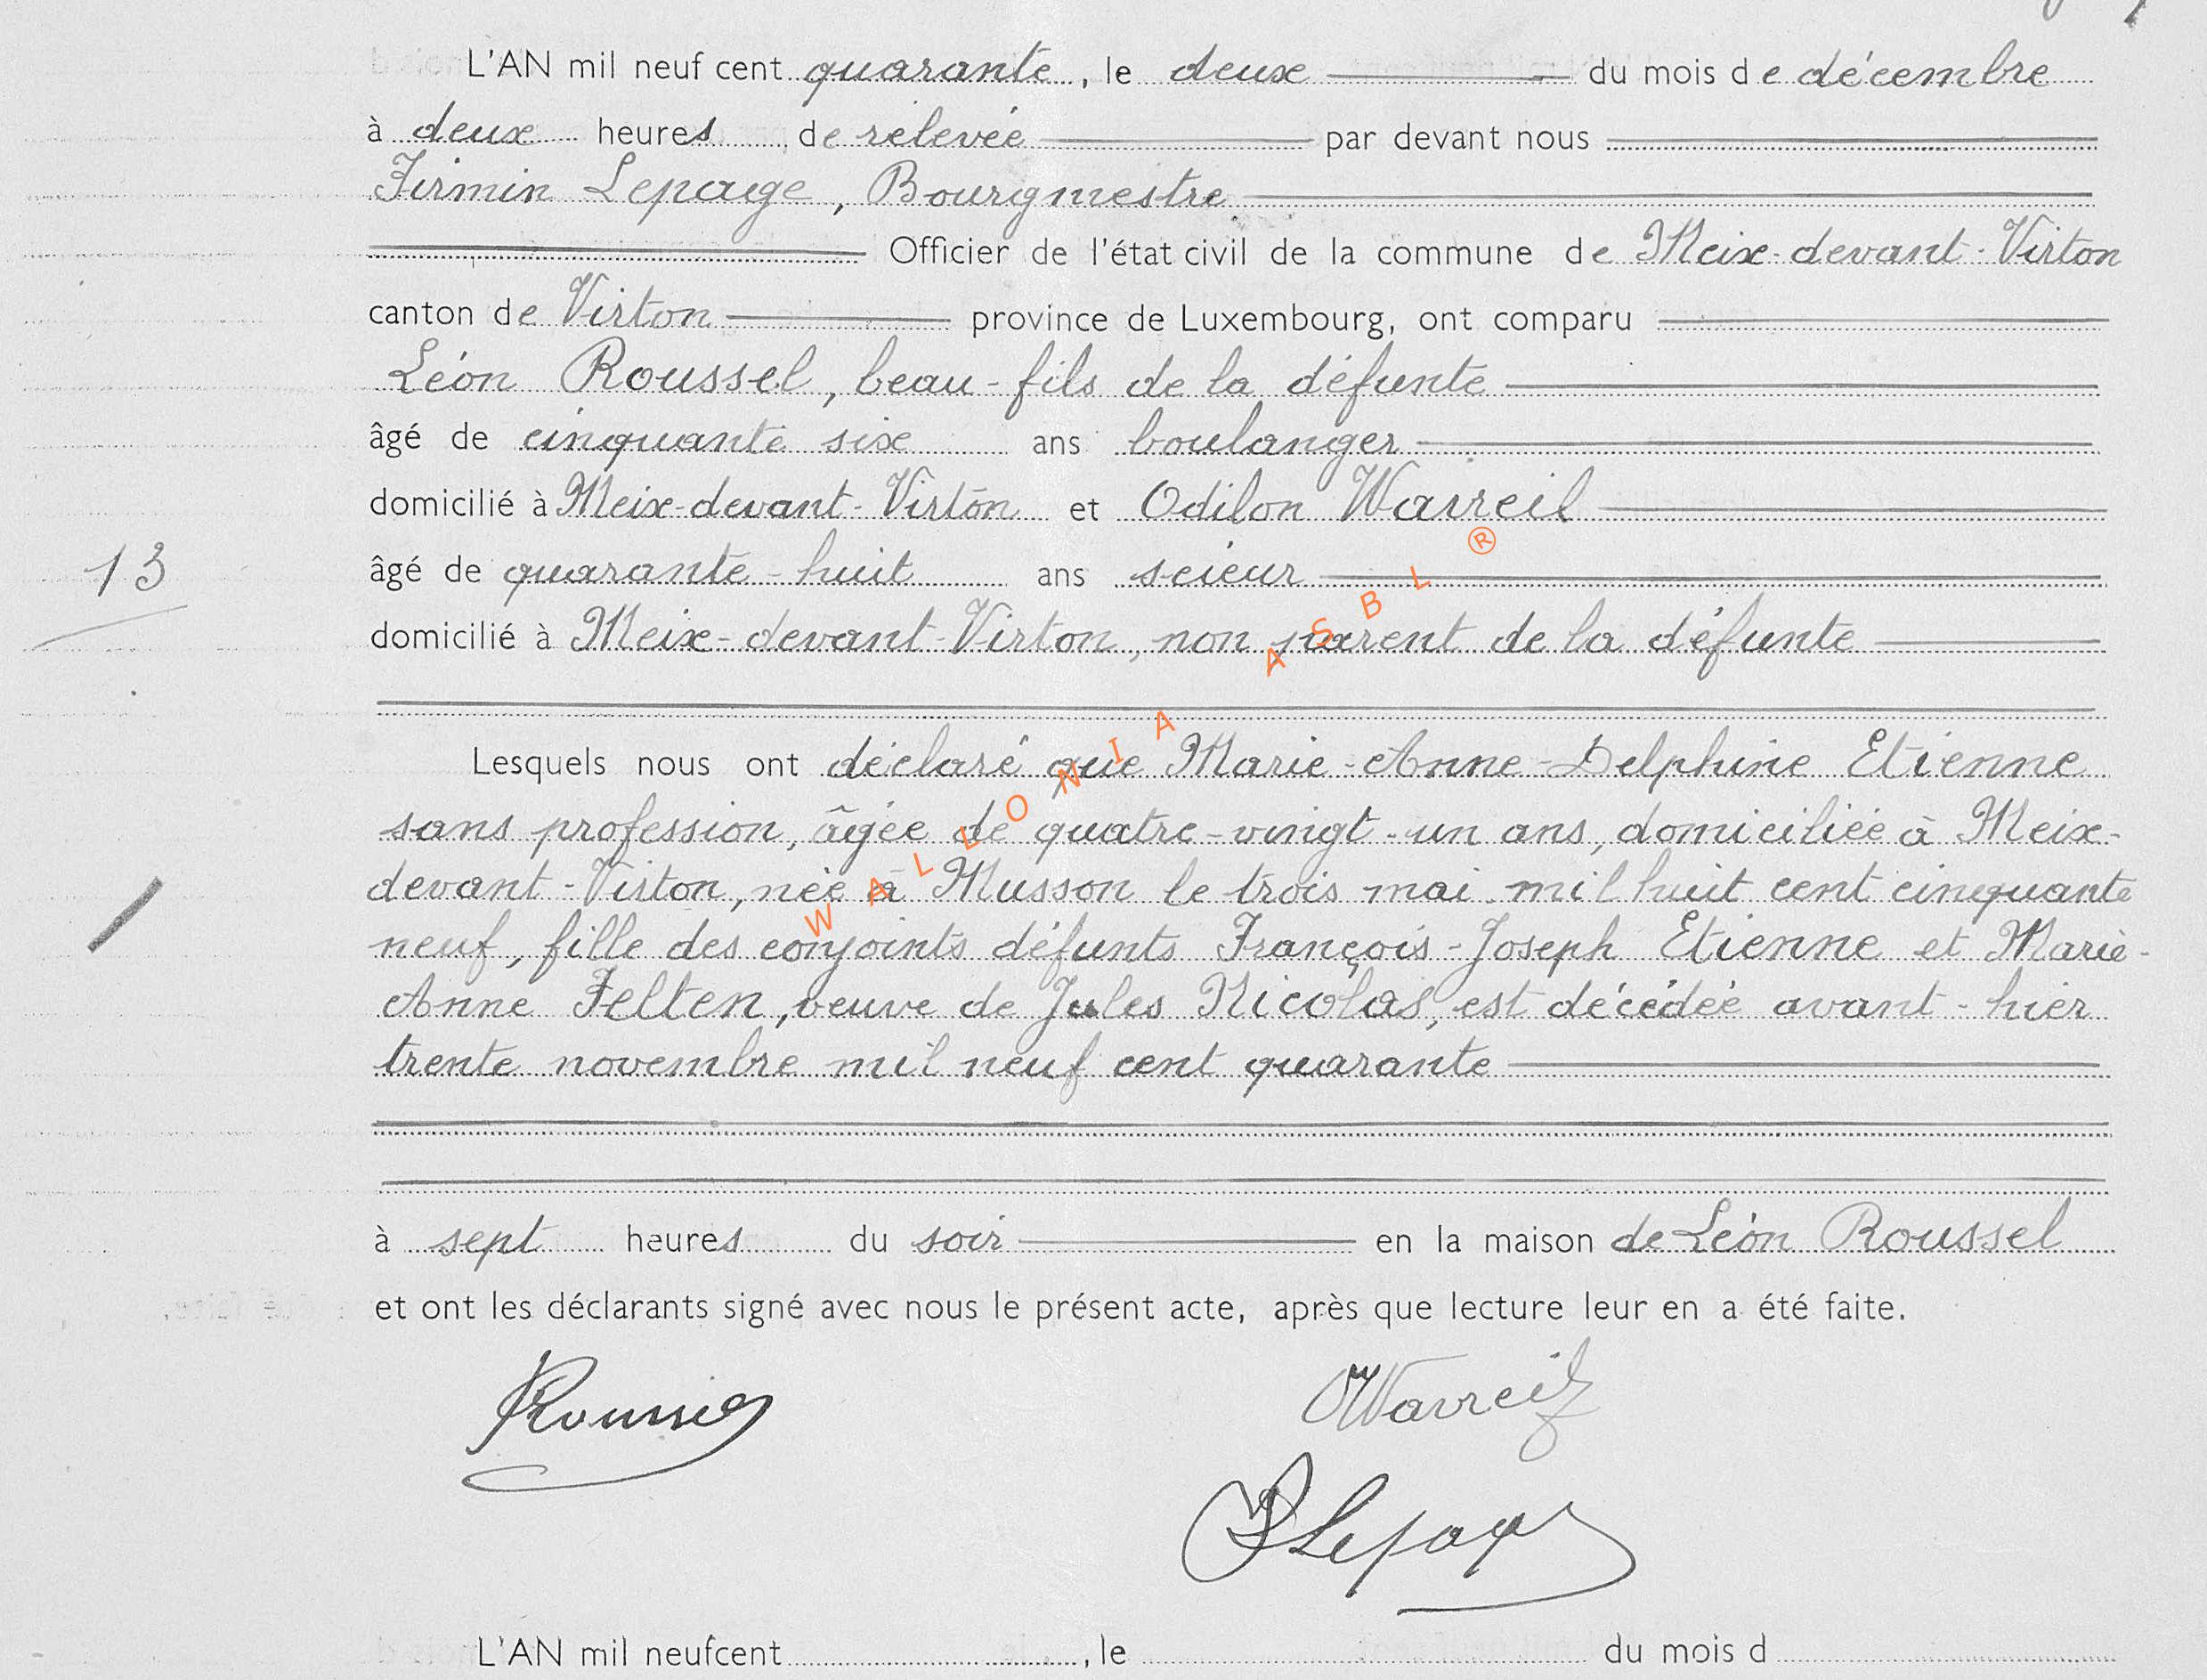 L'AN mil neuf cent quarante, le deux du mois de décembre
à deux heures de relevée par devant nous
Firmin Lepage, Bourgmestre
Officier de l'état civil de la commune de Meix-devant-Virton
canton de Virton province de Luxembourg, ont comparu
Léon Roussel, beau-fils de la défunte
âgé de cinquante six ans boulanger
domicilié à Meix-devant-Virton et Odilon Wavreil
13 âgé de quarante-huit ans scieur
domicilié à Meix-devant-Virton, non parent de la défunte
Lesquels nous ont déclaré que Marie-Anne-Delphine Etienne
sans profession, âgée de quatre-vingt-un ans, domiciliée à Meix-
devant-Virton, née à Musson le trois mai mil huit cent cinquante
neuf, fille des conjoints défunts François-Joseph Etienne et Marie-
Anne Felten, veuve de Jules Nicolas, est décédée avant-hier
trente novembre mil neuf cent quarante
à sept heures du soir en la maison de Léon Roussel
et ont les déclarants signé avec nous le présent acte, après que lecture leur en a été faite.
Roussel OWavreil
FLepage
L'AN mil neuf cent , le du mois d
WALLONIA ASBL ®